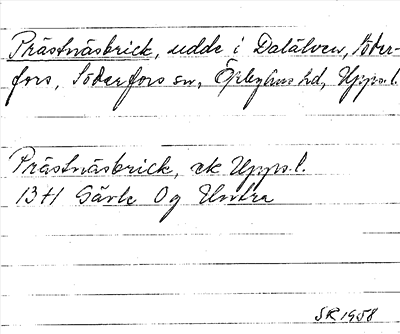 Prästnäsbrick, udde i Dalälven, Söder-
fors, Söderfors sn, Örbyhus hd, Upps. l.
Prästnäsbrick, ek Upps. l.
13 H Gävle Og Untra
SR 1958